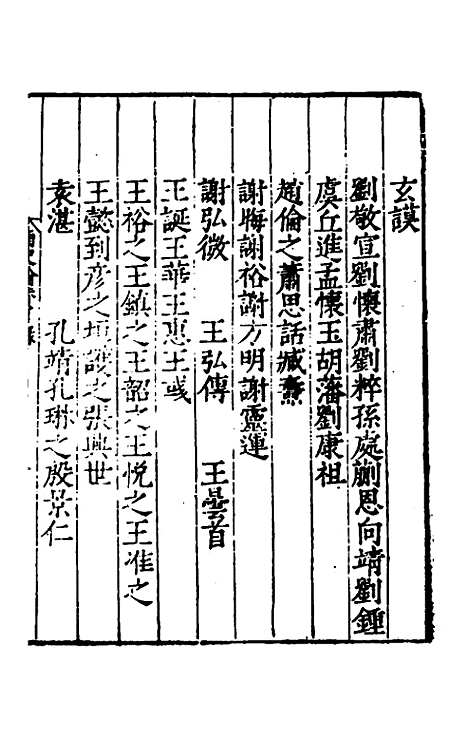 玄謨
劉敬宣劉懷肅劉粹孫處蒯恩向靖劉鍾
虞丘進孟懷玉胡藩劉康祖
趙倫之蕭思話臧燾
謝晦謝裕謝方明謝靈運
謝弘微　王弘傳　王曇首
王誕王華王惠王彧
王裕之王鎮之王韶之王悅之王准之
王懿到彥之垣護之張興世
袁湛　孔靖孔琳之殷景仁